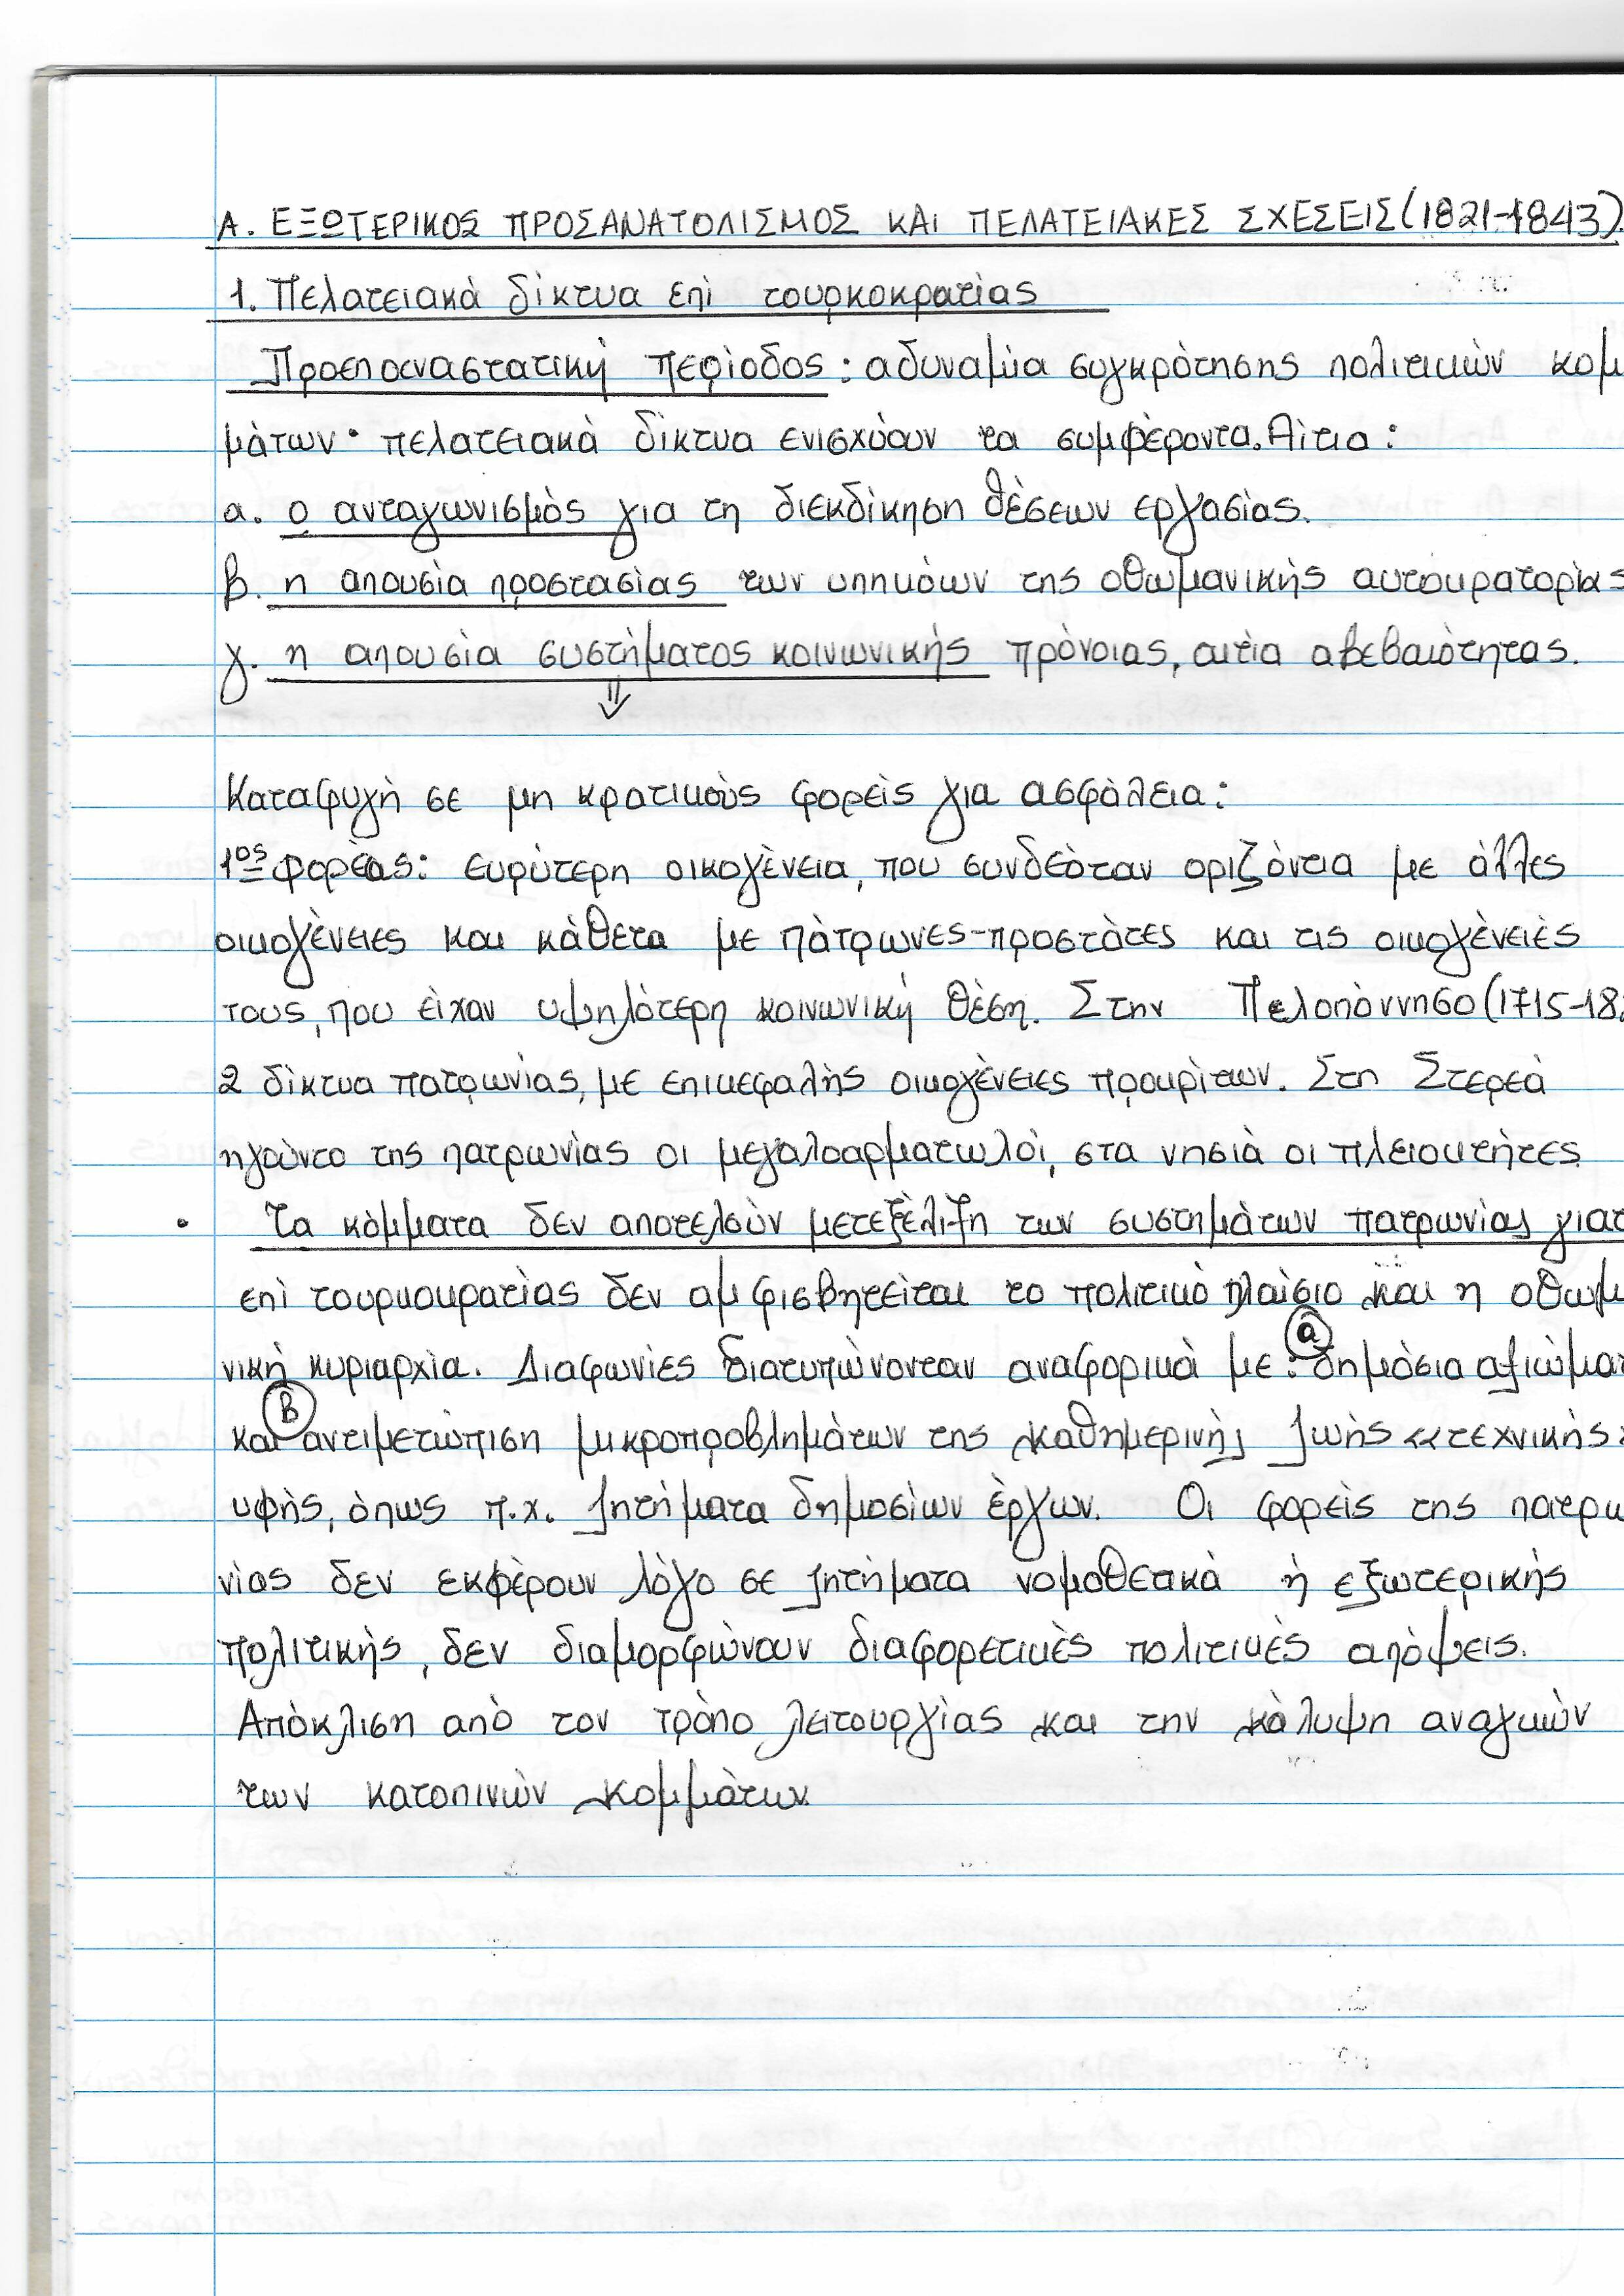 Α. ΕΞΩΤΕΡΙΚΟΣ ΠΡΟΣΑΝΑΤΟΛΙΣΜΟΣ ΚΑΙ ΠΕΛΑΤΕΙΑΚΕΣ ΣΧΕΣΕΙΣ (1821-1843).
1. Πελατειακά δίκτυα επί τουρκοκρατίας
Προεπαναστατική περίοδος: αδυναμία συγκρότησης πολιτικών κομ
μάτων· πελατειακά δίκτυα ενισχύουν τα συμφέροντα. Αίτια:
α. ο ανταγωνισμός για τη διεκδίκηση θέσεων εργασίας.
β. η απουσία προστασίας των υπηκόων της οθωμανικής αυτοκρατορίας
γ. η απουσία συστήματος κοινωνικής πρόνοιας, αιτία αβεβαιότητας.
⇓
Καταφυγή σε μη κρατικούς φορείς για ασφάλεια:
1ος φορέας: ευρύτερη οικογένεια, που συνδεόταν οριζόντια με άλλες
οικογένειες και κάθετα με πάτρωνες-προστάτες και τις οικογένειές
τους, που είχαν υψηλότερη κοινωνική θέση. Στην Πελοπόννησο (1715-18
2 δίκτυα πατρωνίας, με επικεφαλής οικογένειες προκρίτων. Στη Στερεά
ηγούντο της πατρωνίας οι μεγαλοαρματωλοί, στα νησιά οι πλειοκτήτες
• Τα κόμματα δεν αποτελούν μετεξέλιξη των συστημάτων πατρωνίας γιατ
επί τουρκοκρατίας δεν αμφισβητείται το πολιτικό πλαίσιο και η οθωμ
νική κυριαρχία. Διαφωνίες διατυπώνονταν αναφορικά με: α δημόσια αξιώματ
και β αντιμετώπιση μικροπροβλημάτων της καθημερινής ζωής «τεχνικής»
υφής, όπως π.χ. ζητήματα δημοσίων έργων. Οι φορείς της πατρω
νίας δεν εκφέρουν λόγο σε ζητήματα νομοθετικά ή εξωτερικής
πολιτικής, δεν διαμορφώνουν διαφορετικές πολιτικές απόψεις.
Απόκλιση από τον τρόπο λειτουργίας και την κάλυψη αναγκών
των κατοπινών κομμάτων